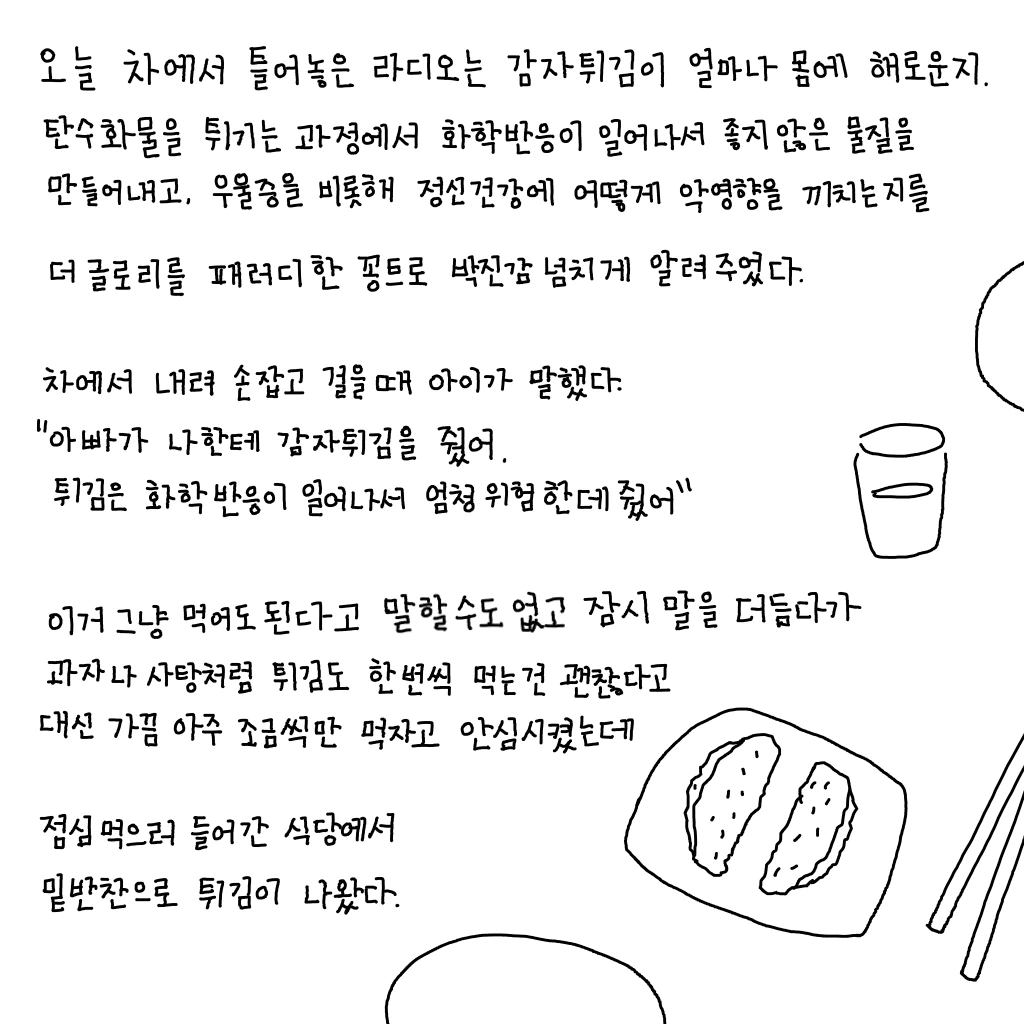 오늘 차에서 틀어놓은 라디오는 감자튀김이 얼마나 몸에 해로운지.
탄수화물을 튀기는 과정에서 화학반응이 일어나서 좋지않은 물질을
만들어내고, 우울증을 비롯해 정신건강에 어떻게 악영향을 끼치는지를
더글로리를 패러디한 꽁트로 박진감 넘치게 알려주었다.
차에서 내려 손잡고 걸을때 아이가 말했다.
"아빠가 나한테 감자튀김을 줬어.
튀김은 화학반응이 일어나서 엄청 위험한데 줬어"
이거 그냥 먹어도 된다고 말할수도 없고 잠시 말을 더듬다가
과자나 사탕처럼 튀김도 한번씩 먹는건 괜찮다고
대신 가끔 아주 조금씩만 먹자고 안심시켰는데
점심먹으러 들어간 식당에서
밑반찬으로 튀김이 나왔다.